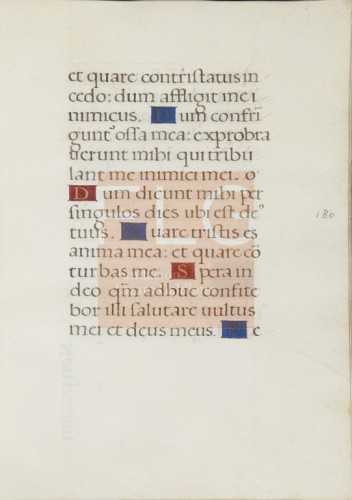 et quare contristatus in
cedo: dum affligit me i
nimicus. Dum confri
gunt᷒ ossa mea: exprobra
uerunt mihi qui tribu
lant me inimici mei.
Dum dicunt mihi per
singulos dies ubi est de᷒
tuus. Quare tristis es
anima mea: et quare cō
turbas me. Spera in
deo qm̄ adhuc confite
bor illi salutare uultus
mei et deus meus. e
180